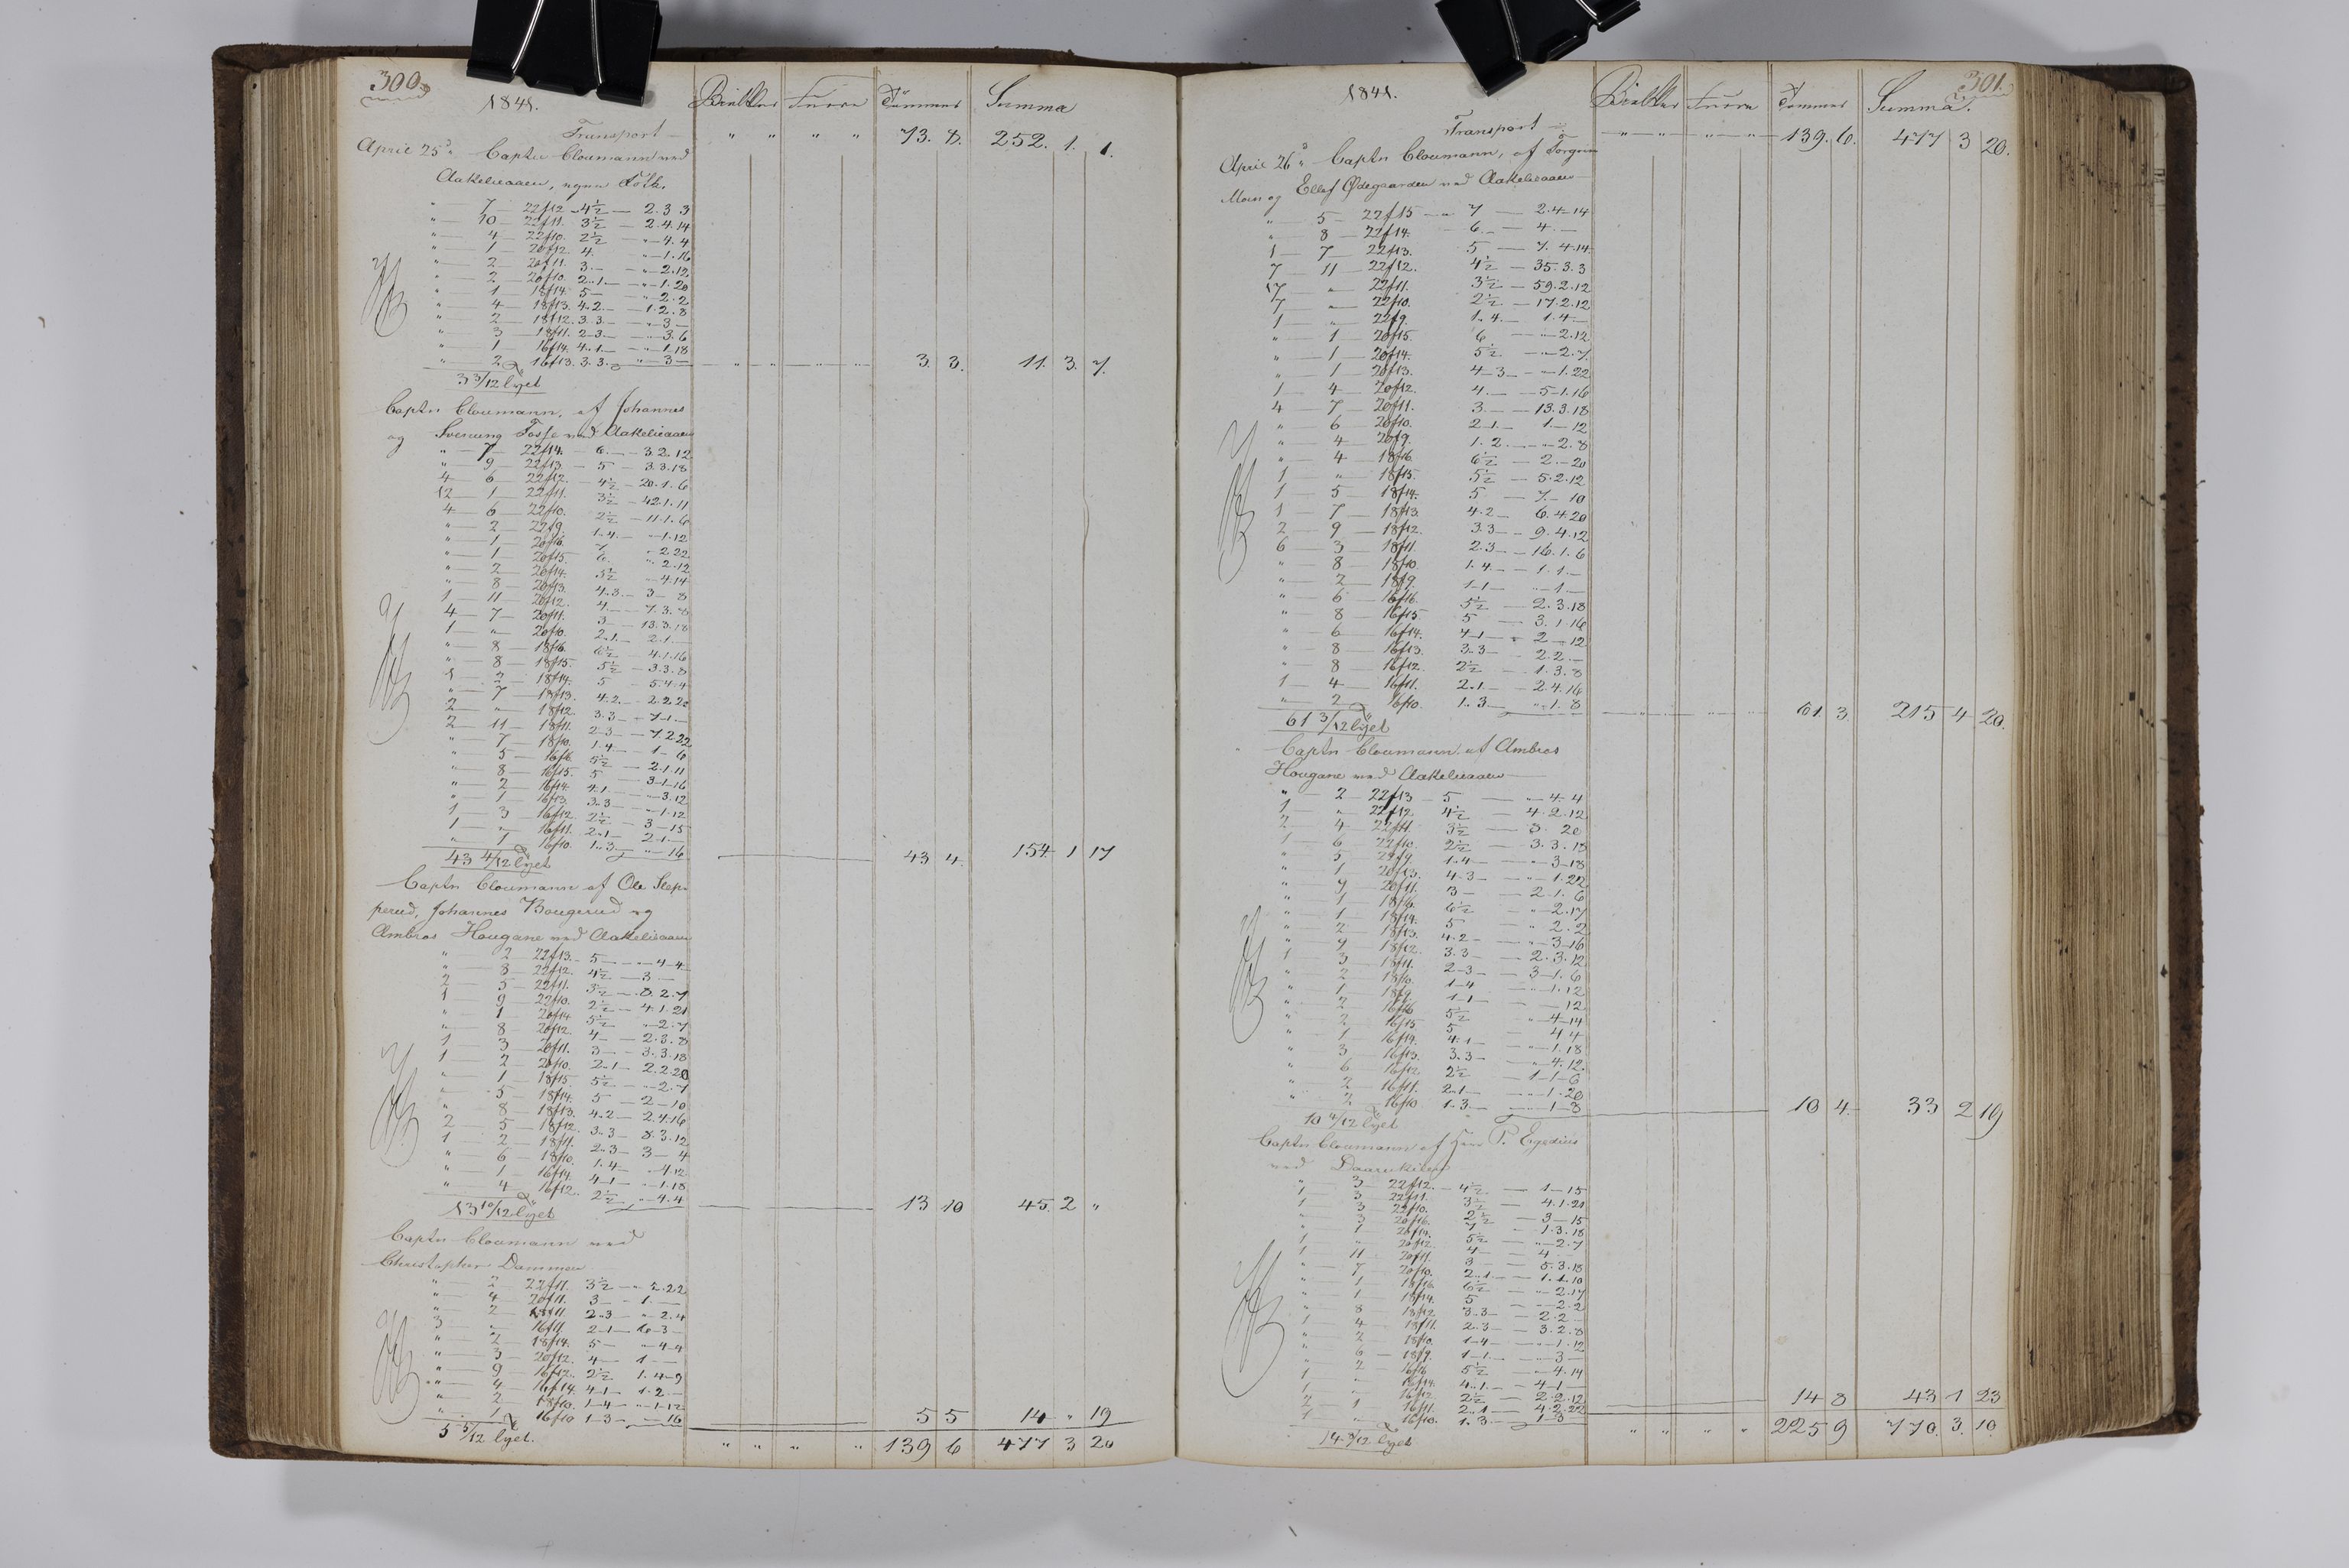 300.
1841. Bielker Furre Tømmer Summa
Transport — " " " " 73. 8. 252. 1. 1.
April 25d " Captn Cloumann ved
Aakelieaaen, egne Folk.
" — 7 — 22f12 — 4½ — 2. 3 3
" — 10 — 22f11. 3½ — 2. 4. 14
" — 4 — 22f10. 2½ — " — 4. 4
" — 1 — 20f12. 4. — " — 1. 16
" — 2 — 20f11. 3. — " — 2. 12
" — 2 — 20f10. 2.. 1. — " — 1. 20
" — 1 — 18f14. 5 — " — 2. 2
" — 4 — 18f13. 4. 2. — 1. 2. 8
" — 2 — 18f12. 3. 3. — " — 3 —
" — 3 — 18f11. 2 — 3. — " — 3. 6
" — 1 — 16f14. 4.. 1. — " — 1. 18
" — 2 — 16f13. 3. 3. — " — 3 — 3. 3. 11. 3. 7.
3 3/12 lyet
Captn Cloumann, af Johannes
og Svenung Fosse ved Aakelieaaen
" — 7 — 22f14. — 6. — 3 2. 12
" — 9 — 22f13. — 5 — 3. 3. 18
4 — 6 — 22f12. — 4½ — 20. 1. 6
12 — 1 — 22f11. 3½ — 42. 1. 11
4 — 6 — 22f10. 2½ — 11. 1. 6
" — 2 — 22f9. 1. 4. — " — 1. 12
" — 1 — 20f16. 7 — " 2. 22
" — 1 — 20f15. 6. — " 2. 12
" — 2 — 20f14. 5½ — " 4. 14
" — 8 — 20f13. 4.. 3. — 3 — 8
1 — 11 — 20f12. 4 — 7. 3. 8
4 — 7 — 20f11. 3 — 13. 3. 18
1 — " — 20f10. 2.. 1. — 2. 1. —
" — 8 — 18f16. 6½ — 4. 1. 16
" — 8 — 18f15. 5½ — 3. 3. 8
1 — 2 — 18f14. 5 — 5. 4. 4
" — 7 — 18f13. 4. 2. — 2. 2 22
2 — " — 18f12. 3. 3 — 7. 1. —
2 — 11 — 18f11. 2 — 3 — 7. 2 22
" — 7 — 18f10. 1. 4 — 1 — 6
" — 5 — 16f16. 5½ — 2. 1. 11
" — 8 — 16f15. 5 — 3 — 1 — 16
" — 2 — 16f14. 4. 1. — " — 3. 12
" — 1 — 16f13. 3.. 3 — " — 1. 12
1 — 3 — 16f12. 2½ — 3 — 15
1 — " — 16f11. 2.. 1 — 2. 1 —
" — 1 — 16f10. 1.. 3. — " — 16 43 4. 154 1 17
43 4/12 lyet
Captn Cloumann af Ole Slep-
perud, Johannes Bougerud og
Ambros Hougane ved Aakelieaaen
" — 2 — 22f13. — 5 — " — 4 — 4
" — 8 — 22f12. 4½ — 3 —
2 — 5 — 22f11. 3½ — 8. 2. 7
1 — 9 — 22f10. 2½ — 4. 1. 21
" — 1 — 20f14. 5½ — " — 2. 7
" — 8 — 20f12. 4 — 2. 3. 8
1 — 3 — 20f11. 3 — 3. 3. 18
1 — 2 — 20f10. 2.. 1 — 2. 2. 20
" — 1 — 18f15. 5½ — " — 2. 7
" — 5 — 18f14. 5 — 2 — 10
" — 8 — 18f13. 4.. 2 — 2. 4. 16
2 — 5 — 18f12. 3.. 3 — 8. 3. 12
1 — 2 — 18f11. 2.. 3 — 3 — 4
" — 6 — 18f10. 1. 4 — " 4. 12
" — 1 — 16f14. 4 — 1 — " — 1. 18
" — 4 — 16f12. 2½ — " — 4. 4 13 10 45. 2 "
13 10/12 lyet
Captn Cloumann ved
Christopher Dammen
" — 2 — 22f11. 3½ — " 2. 22
" — 4 — 20f11. 3 — 1. —
" — 2 — 18f11 2.. 3 — " 2. 4
3 — " — 16f11. 2 — 1 — 6 — 3 —
" — 2 — 18f14. 5 — " 4 — 4
" — 3 — 20f12. 4 — 1 —
" — 9 — 16f12. 2½ 1. 4 — 9
" — 4 — 16f14. 4 — 1 — 1. 2. —
" — 2 — 18f10. 1 — 4 — " — 1 — 12
" — 1 — 16f10 1 — 3 — " — 16 5 5 14 " 19
5 5/12 lyet. " " " " 139 6 477 3 20
301.
1841. Bielker Furre Tømmer Summa.
Transport — " " " " 139. 6. 477 3 20.
April 26d " Captn Cloumann, af Torgrim
Moen og Ellef Ødegaarden ved Aakelieaaen
" — 5 — 22f15 — 7 — 2. 4 — 14
" — 8 — 22f14. — 6 — 4. —
1 — 7 — 22f13. 5 — 7. 4. 14
7 — 11 — 22f12. 4½ — 35. 3. 3
17 — " — 22f11. 3½ — 59. 2. 12
7 — " — 22f10. 2½ — 17. 2. 12
1 — " — 22f9. 1. 4. — 1. 4. —
" — 1 — 20f15. 6 — " — 2. 12
" — 1 — 20f14. 5½ — " — 2. 7.
" — 1 — 20f13. 4 — 3 — " — 1. 22
1 — 4 — 20f12. 4. — 5 — 1. 16
4 — 7 — 20f11. 3. — 13. 3. 18
" — 6 — 20f10. 2 — 1. — 1. — 12
" — 4 — 20f9. 1. 2. — " — 2. 8
" — 4 — 18f16. 6½ — 2. — 20
1 — " — 18f15. 5½ — 5. 2. 12
1 — 5 — 18f14. 5 — 7. — 10
1 — 7 — 18f13. 4. 2 — 6. 4. 20
2 — 9 — 18f12. 3. 3 — 9. 4. 12
6 — 3 — 18f11. 2. 3 — 16. 1. 6
" — 8 — 18f10. 1. 4. — 1. 1. —
" — 2 — 18f9. 1 — 1 — " — 1. —
" — 6 — 16f16. 5½ — 2. 3. 18
" — 8 — 16f15 5 — 3. 1. 16
" — 6 — 16f14. 4 — 1 — 2 — 12
" — 8 — 16f13. 3.. 3 — 2. 2. —
" — 8 — 16f12. 2½ — 1. 3. 8
1 — 4 — 16f11. 2.. 1. — 2. 4. 16
" — 2 — 16f10. 1. 3. — " — 1. 8 61. 3. 215 4 20.
61 3/12 lyet
Captn Cloumann af Ambros
Hougane ved Aakelieaaen —
" — 2 — 22f13 — 5 — " — 4. 4
1 — " — 22f12 4½ — 4. 2. 12
2 — 4 — 22f11. 3½ — 8. " 20
1 — 6 — 22f10. 2½ — 3. 3. 18
" — 5 — 22f9. 1. 4 — " — 3 — 18
" — 1 — 20f13. 4. 3 — " — 1. 22
" — 9 — 20f11. 3 — 2. 1. 6
" — 1 — 18f16. 6½ — " — 2. 17
" — 1 — 18f14. 5 — " 2. 2
" — 2 — 18f13. 4. 2 — " — 3 — 16
" — 9 — 18f12. 3. 3 — 2. 3. 12
1 — 3 — 18f11. 2 — 3 — 3 — 1. 6
" — 2 — 18f10. 1 — 4 — " — 1. 12
" — 1 — 18f9. 1 — 1 — 12
" — 2 — 16f16 5½ — " — 4 — 14
" — 2 — 16f15 5 — 4 4
" — 1 — 16f14. 4. 1 — " — 1. 18
" — 3 — 16f13. 3. 3 — " — 4. 12.
" — 6 — 16f12. 2½ — 1 — 1 — 6
" — 2 — 16f11. 2.. 1 — " — 1. 20
" — 2 — 16f10 1. 3. — " — 1 — 8 10 4. 33 2 19
10 4/12 lyet
Captn Cloumann af Herr P. Egedius
ved Daarekilen
" 3 — 22f12. 4½ — 1 — 15
1 3 — 22f11. 3½ — 4. 1. 21
1 3 — 22f10. 2½ — 3 — 15
" 3 20f16. 7 — 1. 3. 18
" 1 20f14. 5½ — " — 2. 7
1 " 20f12. 4 — 4
1 11 20f11. 3 — 5. 3. 18
" 7 20f10. 2.. 1 — 1. 1. 10
" 1 18f16. 6½ — " — 2. 17
" 1 18f14. 5 — " — 2. 2
" 8 18f12 3. 3 — 2. 2 —
1 4 18f11. 2.. 3 — 3. 2. 8
" 2 18f10. 1 — 4 — " — 1. 12
" 6 18f9. 1 — 1. — " — 3 —
" 2 16f16 5½ — " — 4. 14
1 " 16f14. 4.. 1. — 4 — 1
1 " 16f12. 2½ — 2. 2. 12
2 1 16f11. 2.. 1 — 4. 2. 22
1 " 16f10. 1. 3. — 1 — 3 14 8 43 1 23
14 8/12 lyet " " " " 225 9 770. 3. 10.